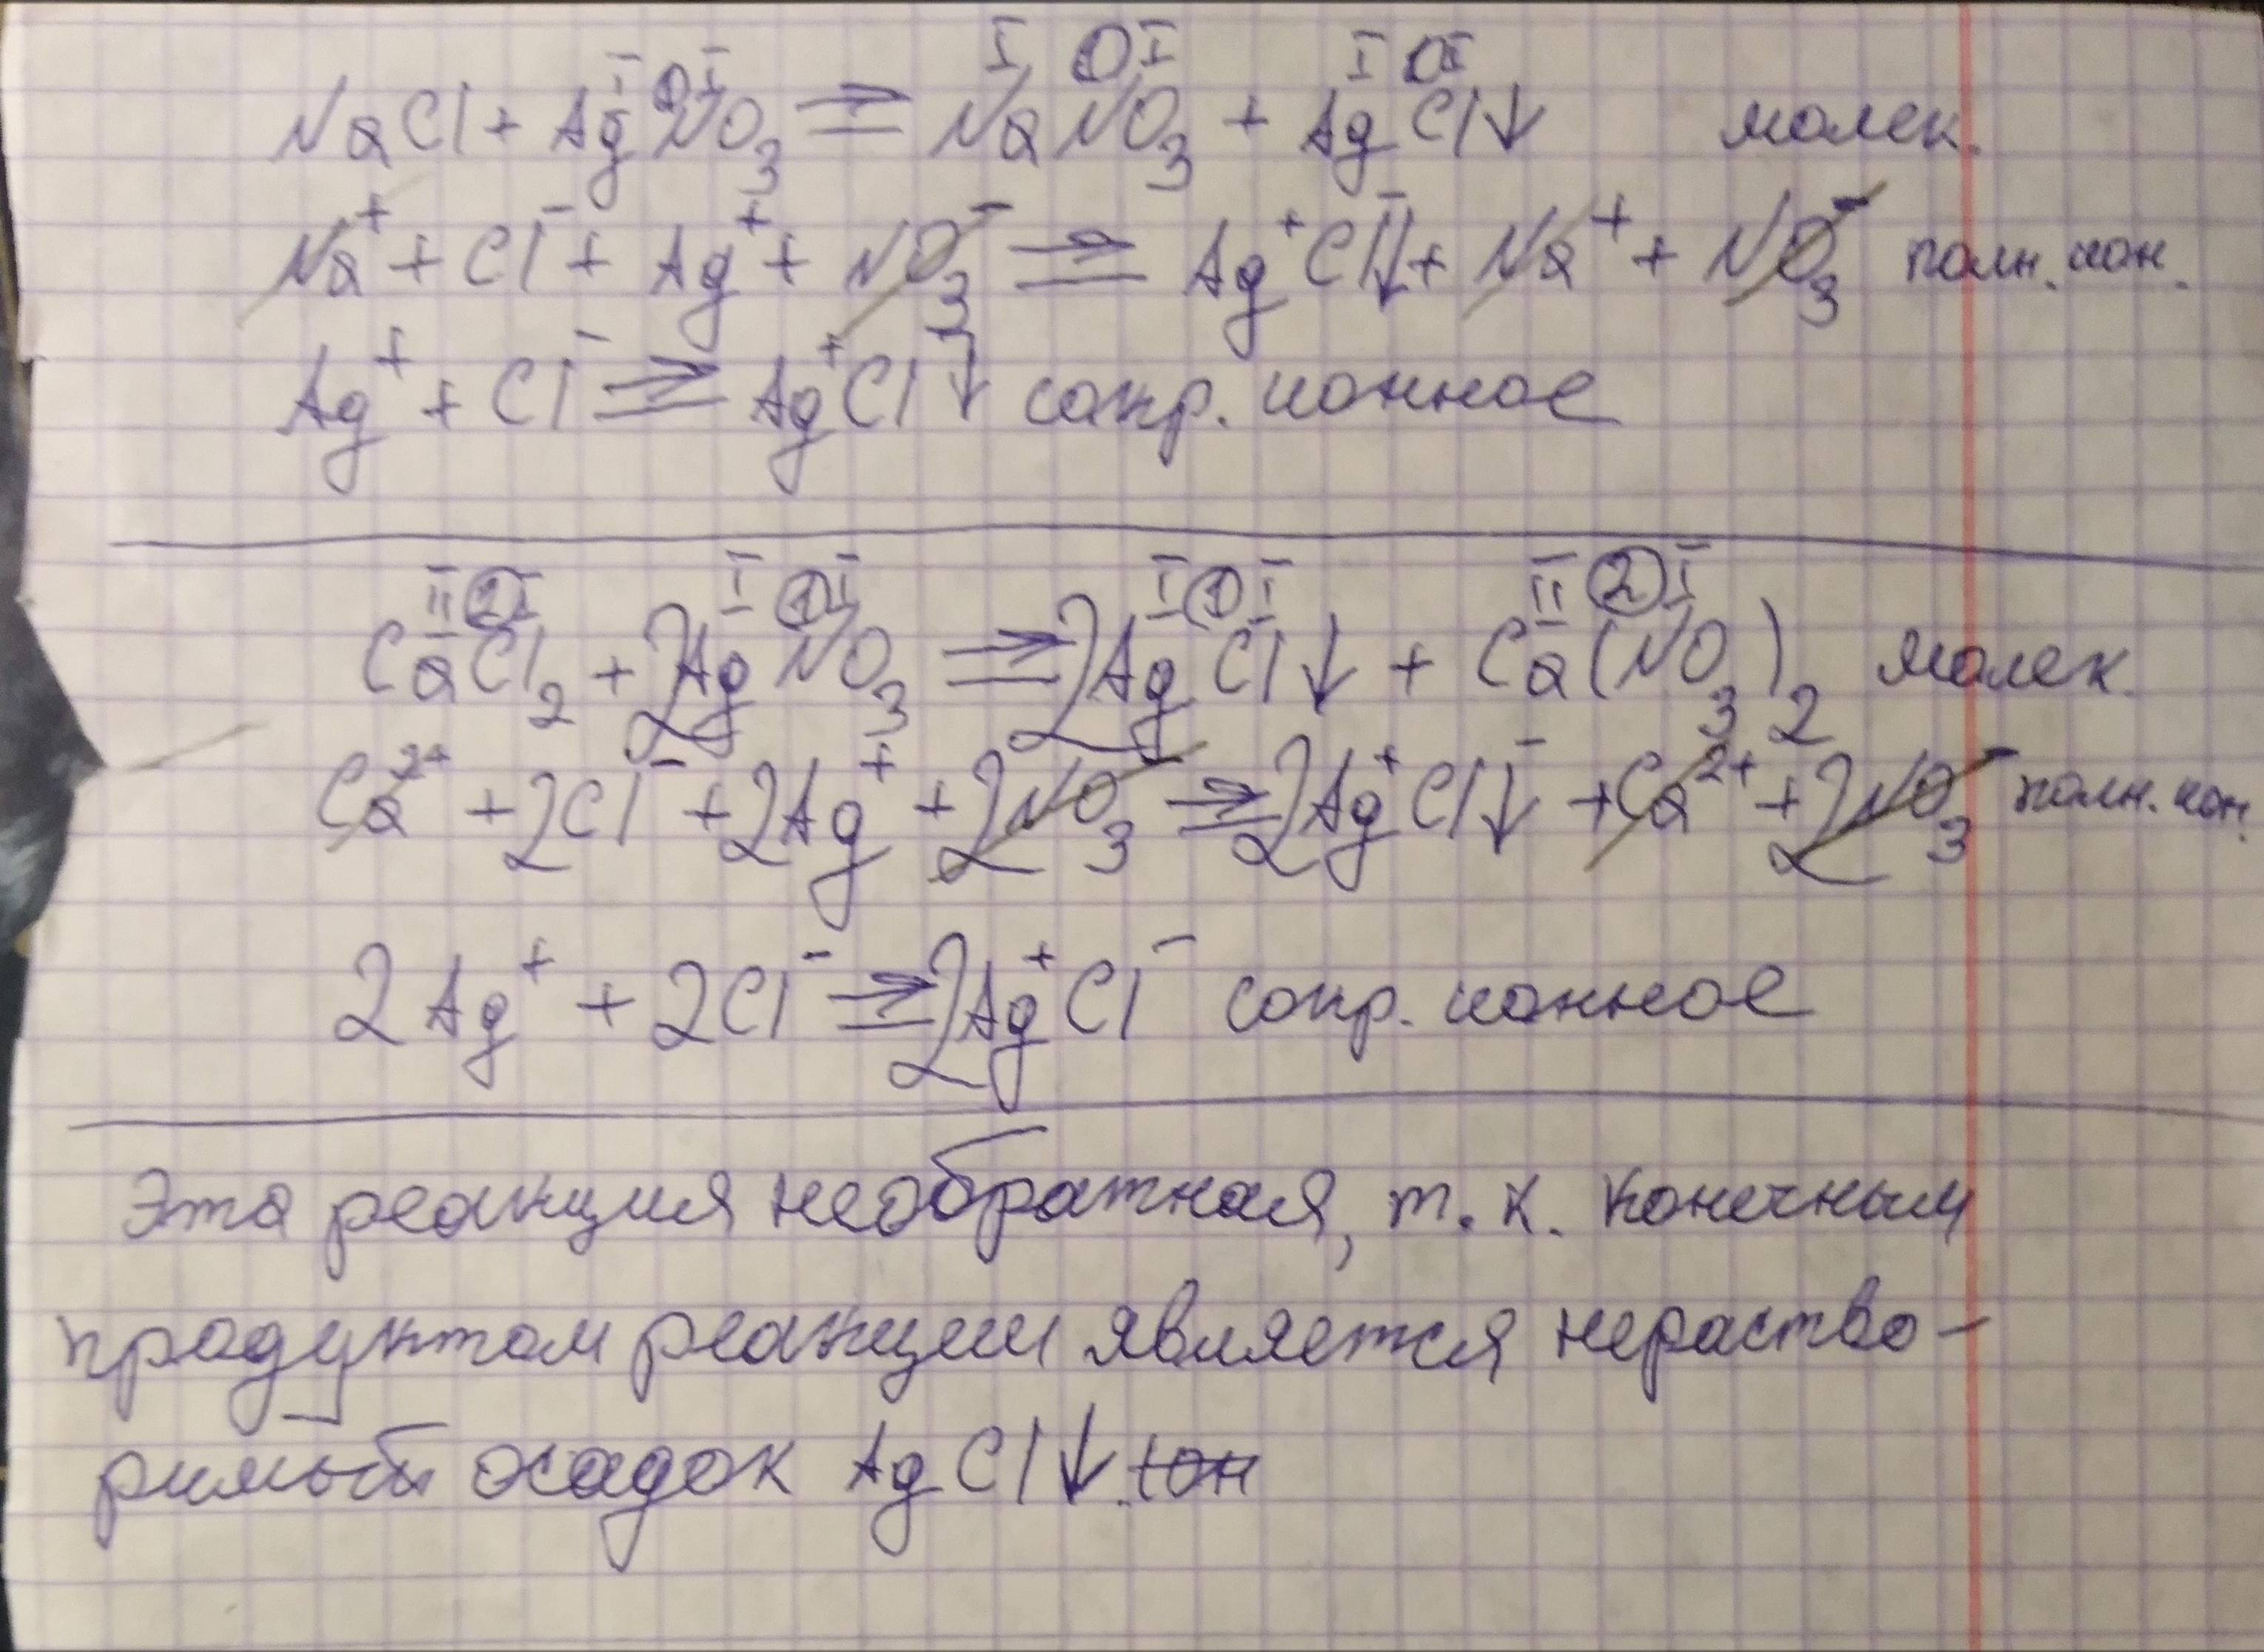 I I I I I I I I I
NaCl + AgNO₃ ⇉ NaNO₃ + AgCl↓ молек.
Na⁺ + Cl⁻ + Ag⁺ + NO₃⁻ ⇉ Ag⁺Cl⁻↓ + Na⁺ + NO₃⁻ полн. ион.
Ag⁺ + Cl⁻ ⇉ Ag⁺Cl⁻↓ сокр. ионное
II ② I I ① I I ① I II ② I
CaCl₂ + 2AgNO₃ ⇉ 2AgCl↓ + Ca(NO₃)₂ молек.
Ca²⁺ + 2Cl⁻ + 2Ag⁺ + 2NO₃⁻ ⇉ 2Ag⁺Cl⁻↓ + Ca²⁺ + 2NO₃⁻ полн. ион.
2Ag⁺ + 2Cl⁻ ⇉ 2Ag⁺Cl⁻ сокр. ионное
Эта реакция необратная, т. к. конечным
продуктом реакции является нераство-
римый осадок AgCl↓.